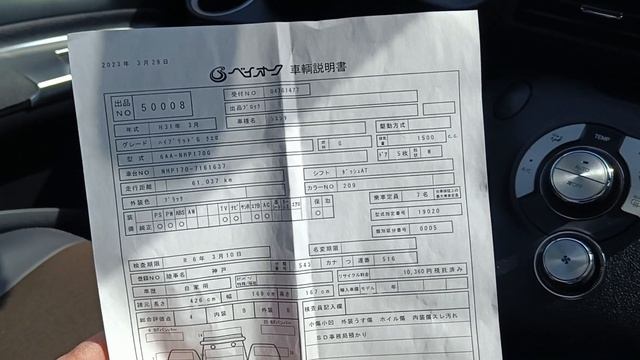 2023年 3月28日
ベイオーク 車輌説明書
出品NO 50008 受付NO 04761477
出品ブロック
年式 H31年 3月 車種名 シエンタ
グレード ハイブリッドG クエロ 駆動方式
型式 6AA-NHP170G 排気量 1500 c.c.
車台NO NHP170-7161637 ドア 5枚 形状 W
走行距離 61,037 km シフト ダッシュAT
外装色 ブラック カラーNO 209
装備 PS PW ABS AW TV ナビ AC 保 取 乗車定員 7名
純正 型式指定番号 19020
類別区分番号 0005
検査期限 R 6年 3月10日 名変期限
登録NO 陸事名 神戸 543 カナ つ 連番 516
車歴 自家用 リサイクル料金 10,360円 預託済み
諸元 長さ 426 cm 幅 169 cm 高さ 167 cm 輸入車種 モデル 年
総合評点 4 内装 B 外装 検査員記入欄
小傷小凹 外装うす傷 ホイル傷 内装傷スレ汚れ
SD事務局預かり
TEMP